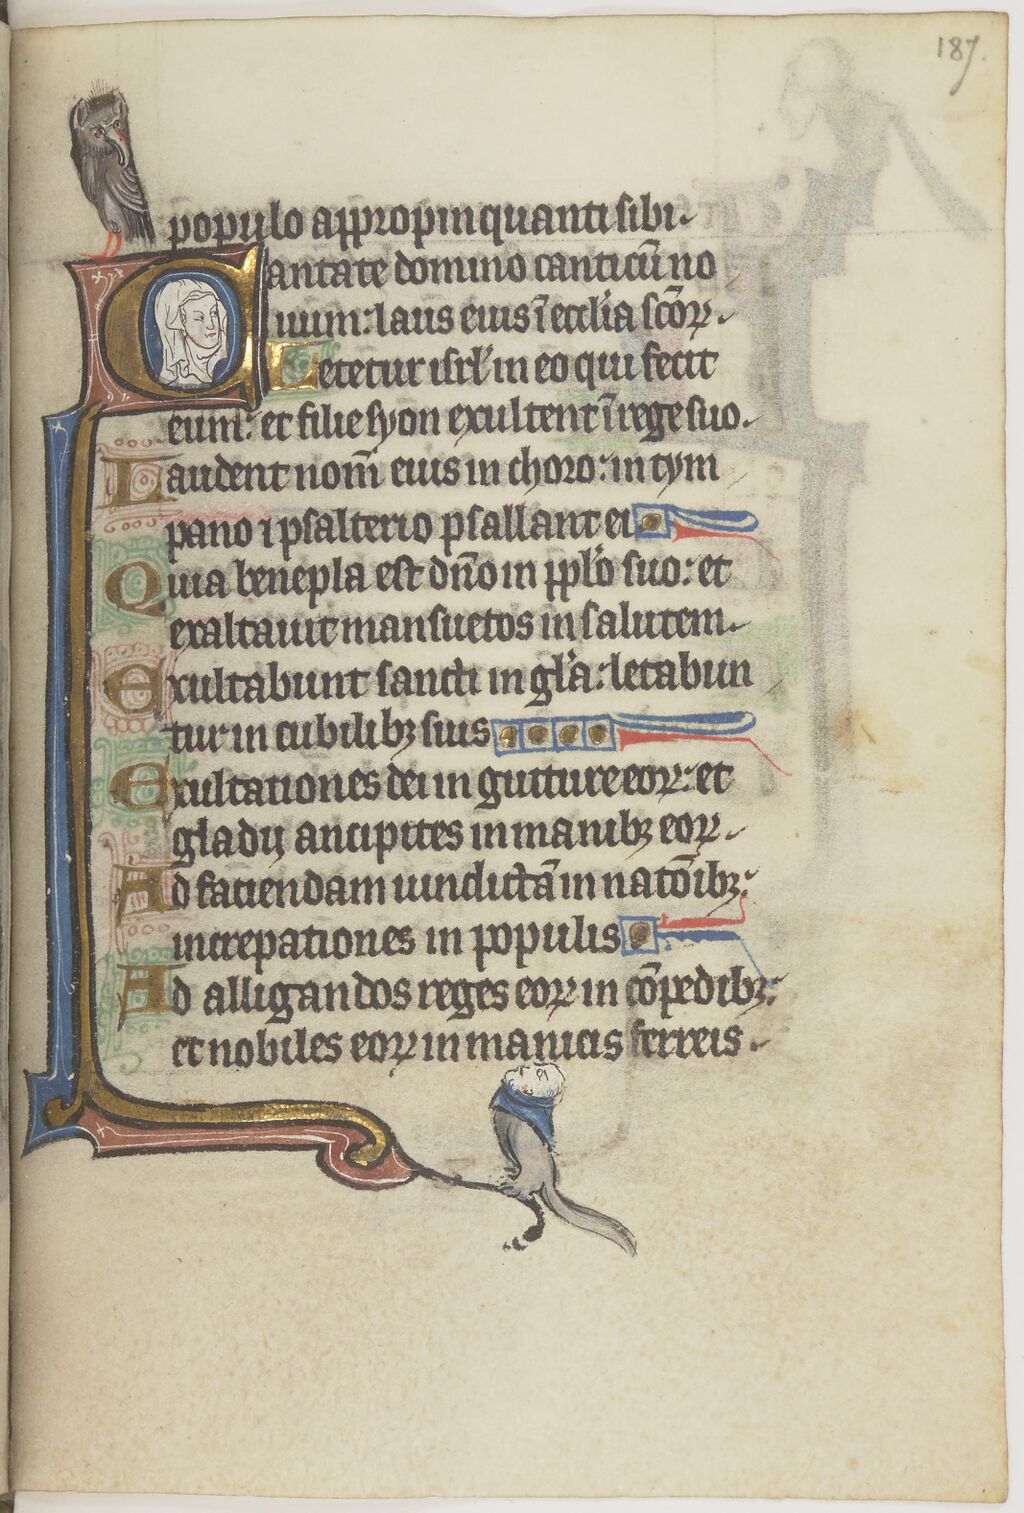 187.
populo appropinquanti sibi.
Cantate domino canticū no
uum: laus eius ī eccl'ia scōꝝ.
Letetur isrl' in eo qui fecit
eum: et filie syon exultent ī rege suo.
Laudent nom̄ eius in choro: in tym
pano ⁊ psalterio psallant ei
Quia benepla est dn̄o in ppl'o suo: et
exaltauit mansuetos in salutem.
Exultabunt sancti in gl'a: letabun
tur in cubilibꝫ suis
Exultationes dei in gutture eoꝝ: et
gladij ancipites in manibꝫ eoꝝ.
Ad faciendam uindictā in natōibꝫ:
increpationes in populis
Ad alligandos reges eoꝝ in cōpedibꝫ:
et nobiles eoꝝ in manicis ferreis.